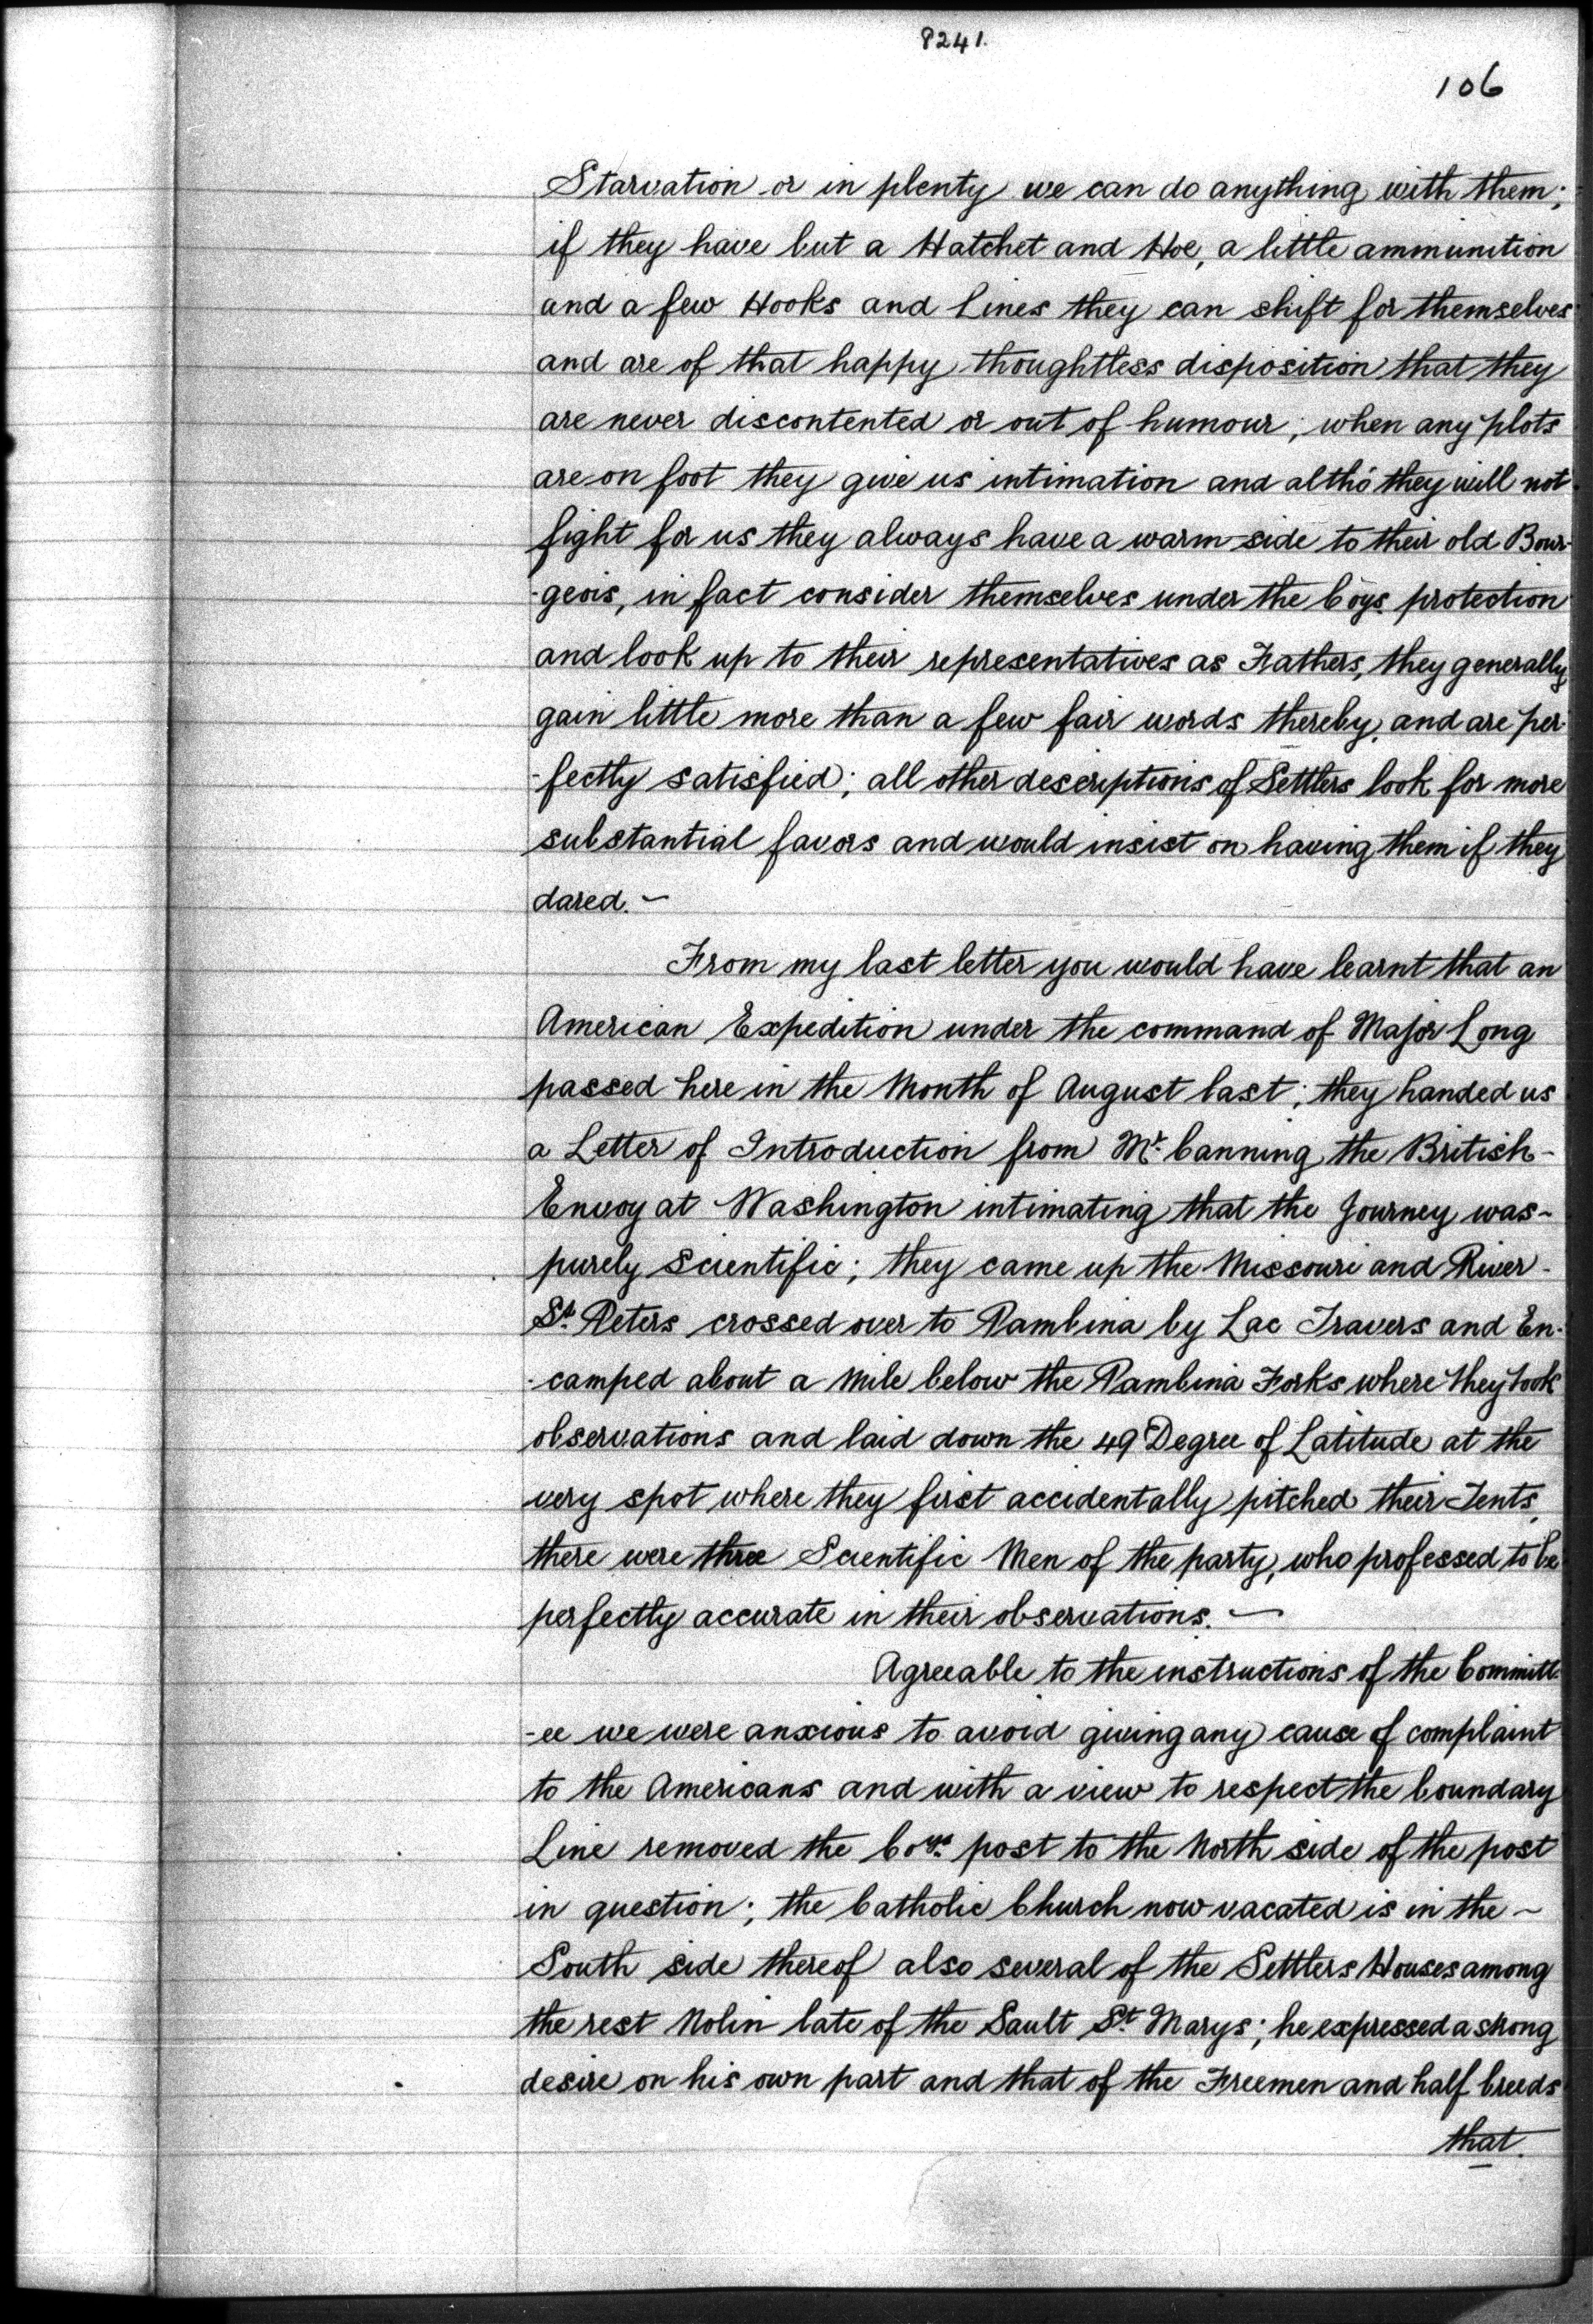 8241.
106
Starvation or in plenty we can do anything with them;
if they have but a Hatchet and Hoe, a little ammunition
and a few Hooks and Lines they can shift for themselves
and are of that happy thoughtless disposition that they
are never discontented or out of humour, when any plots
are on foot they give us intimation and altho' they will not
fight for us they always have a warm side to their old Bour-
-geois, in fact consider themselves under the Coys. protection
and look up to their representatives as Fathers, they generally
gain little more than a few fair words thereby, and are per-
-fectly satisfied; all other descriptions of Settlers look for more
substantial favors and would insist on having them if they
dared. ~
From my last letter you would have learnt that an
American Expedition under the command of Major Long
passed here in the Month of August last; they handed us
a Letter of Introduction from Mr. Canning the British-
Envoy at Washington intimating that the Journey was~
purely Scientific; they came up the Missouri and River-
St. Peters crossed over to Pambina by Lac Travers and En-
-camped about a Mile below the Pambina Forks where they took
observations and laid down the 49 Degree of Latitude at the
very spot where they first accidentally pitched their Tents,
there were three Scientific Men of the party, who professed to be
perfectly accurate in their observations. ~
Agreeable to the instructions of the Committ-
-ee we were anxious to avoid giving any cause of complaint
to the Americans and with a view to respect the boundary
Line removed the Coys. post to the North side of the post
in question; the Catholic Church now vacated is in the ~
South side thereof also several of the Settlers Houses among
the rest Nolin late of the Sault St. Marys; he expressed a strong
desire on his own part and that of the Freemen and half breeds
that.